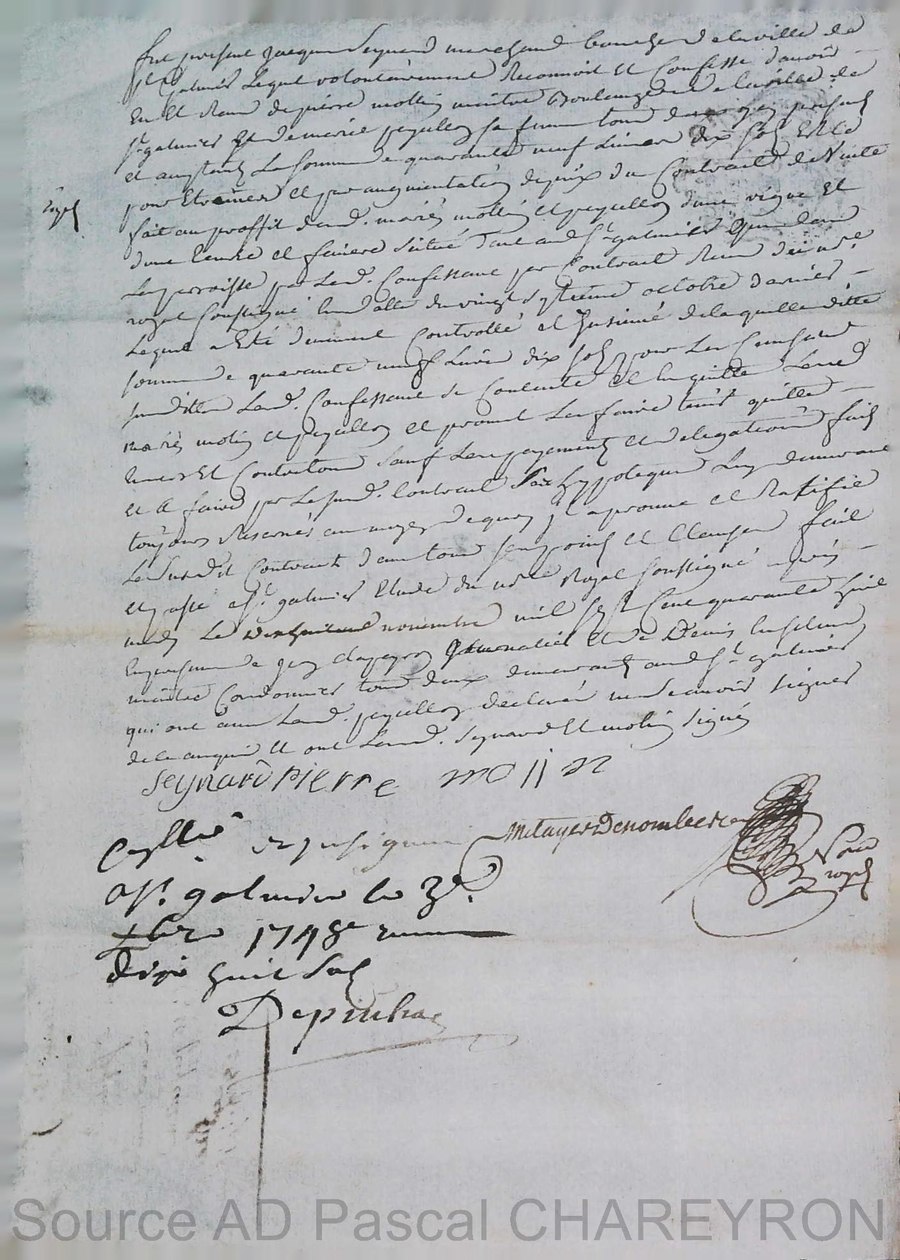 fut present Jacques Seynard marchand boucher de la ville de
St Galmier lequel volontairement Reconnoit et Confesse d'avoir
Eu et Receu de pierre mollin maitre Boulanger de la ville de
St galmier Et de marie peyrellon sa femme tous deux icy presents
et acceptants La somme de quarante neuf Livres dix sols Et Ce
pour Etrennes et par augmentation de prix du Contract de Vente
fait au proffit desd. mariés mollin et peyrellon d'une vigne et
d'une terre et situé aud. St galmier
parroisse par led. Confessant par Contract Receu dud. nre
royal soussigné En datte du vingt septieme octobre dernier
Lequel a Eté duement Controllé et Insinué de laquelle ditte
somme de quarante neuf Livres dix sols pour Les Causes
susdittes Led. Confessant se Contente et En quitte Lesd.
mariés mollin et peyrellon et promet Les faire tenir quitte
Envers Et Contre tous sauf Les payements et delegations faits
et à faire par Le susd. Contract Son hypoteque Luy demeurant
toujours Reservé au moyen de quoy il aprouve et Ratifie
Le Susdit Contract dans tous ses points et Clauses fait
et passé a St galmier Etude du nre Royal soussigné après
midy Le novembre mil sept Cent quarante huit
En presence de Jean Journalier Et de Denis
maitre Cordonnier tous deux demeurants aud St galmier
qui ont avec Lad. peyrellon declaré ne scavoir signer
de ce enquis Et ont Lesd. Seynard Et mollin signé
royal
Seynard Pierre mollin
Metayer Denombre
Nore
royal
Con.llé et insinué
a St. galmier le 3e.
xbre 1748
dixhuit Sols
Depinhac
Source AD Pascal CHAREYRON